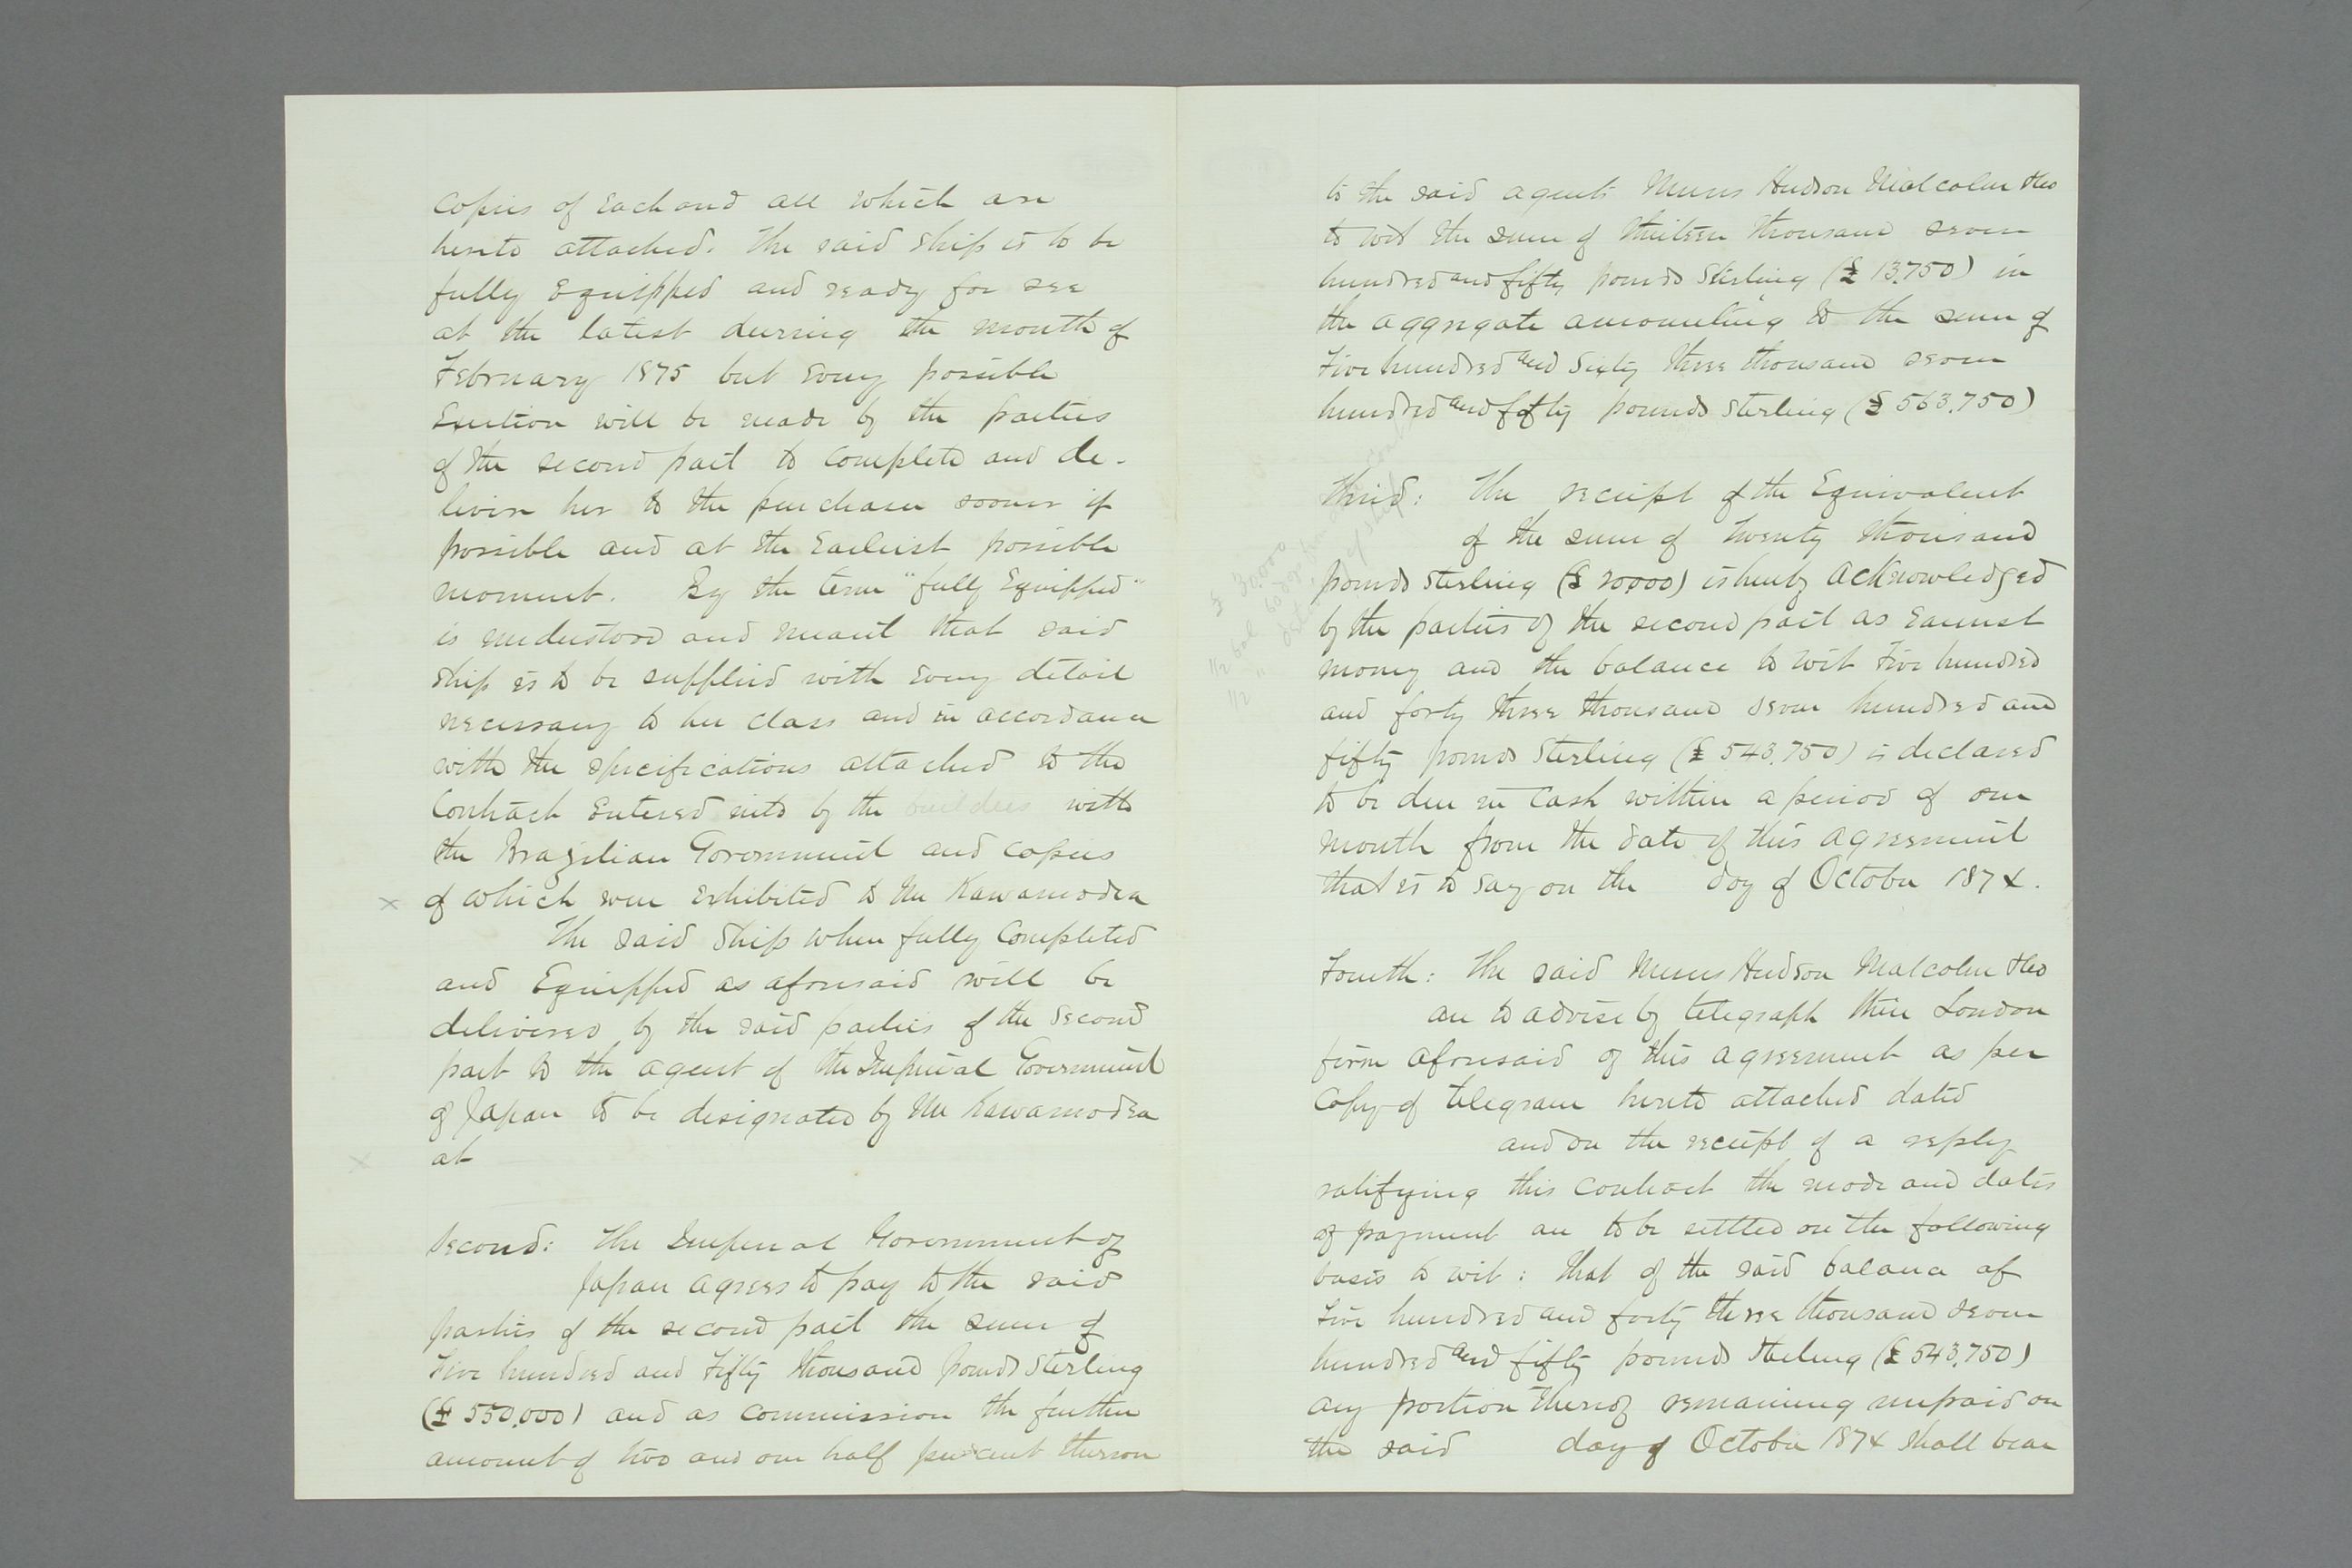 Copies of Each and all which are
hereto attached. The said ship is to be
fully Equipped and ready for sea
at the latest during the month of
February 1875 but every possible
Exertion will be made by the parties
of the second part to complete and de-
liver her to the purchaser sooner if
possible and at the Earliest possible
moment. By the term "fully Equipped"
is understood and meant that said
ship is to be supplied with every detail
necessary to her class and in accordance
with the specifications attached to the
Contract Entered into by the builders with
the Brazilian Government and copies
x of which were Exhibited to Mr Kawamodra
The said Ship when fully Completed
and Equipped as aforesaid will be
delivered by the said parties of the Second
part to the agent of the Imperial Government
of Japan to be designated by Mr Kawamodra
x at
Second: The Imperial Government of
Japan agrees to pay to the said
parties of the second part the sum of
Five hundred and Fifty thousand pounds Sterling
(£ 550,000) and as commission the further
amount of two and one half per cent thereon
to the said agents Messrs Hudson Malcolm &Co
to wit the sum of thirteen thousand seven
hundred and fifty pounds Sterling (£ 13,750) in
the aggregate amounting to the sum of
Five hundred and Sixty three thousand seven
hundred and fifty pounds sterling (£ 563,750)
Third: The receipt of the Equivalent
of the sum of twenty thousand
pounds sterling (£ 20,000) is hereby acknowledged
by the parties of the second part as Earnest
money and the balance to wit Five hundred
and forty three thousand seven hundred and
fifty pounds Sterling (£ 543,750) is declared
to be due in Cash within a period of one
month from the date of this agreement
that is to say on the day of October 1874.
Fourth: The said Messrs Hudson Malcolm &Co
are to advise by telegraph their London
firm aforesaid of this agreement as per
Copy of telegram hereto attached dated
and on the receipt of a reply
ratifying this contract the mode and dates
of payment are to be settled on the following
basis to wit: that of the said balance of
Five hundred and forty three thousand seven
hundred and fifty pounds Sterling (£ 543,750)
any portion thereof remaining unpaid on
the said day of October 1874 shall bear
£ 30,000
1/2 bal
1/2 "